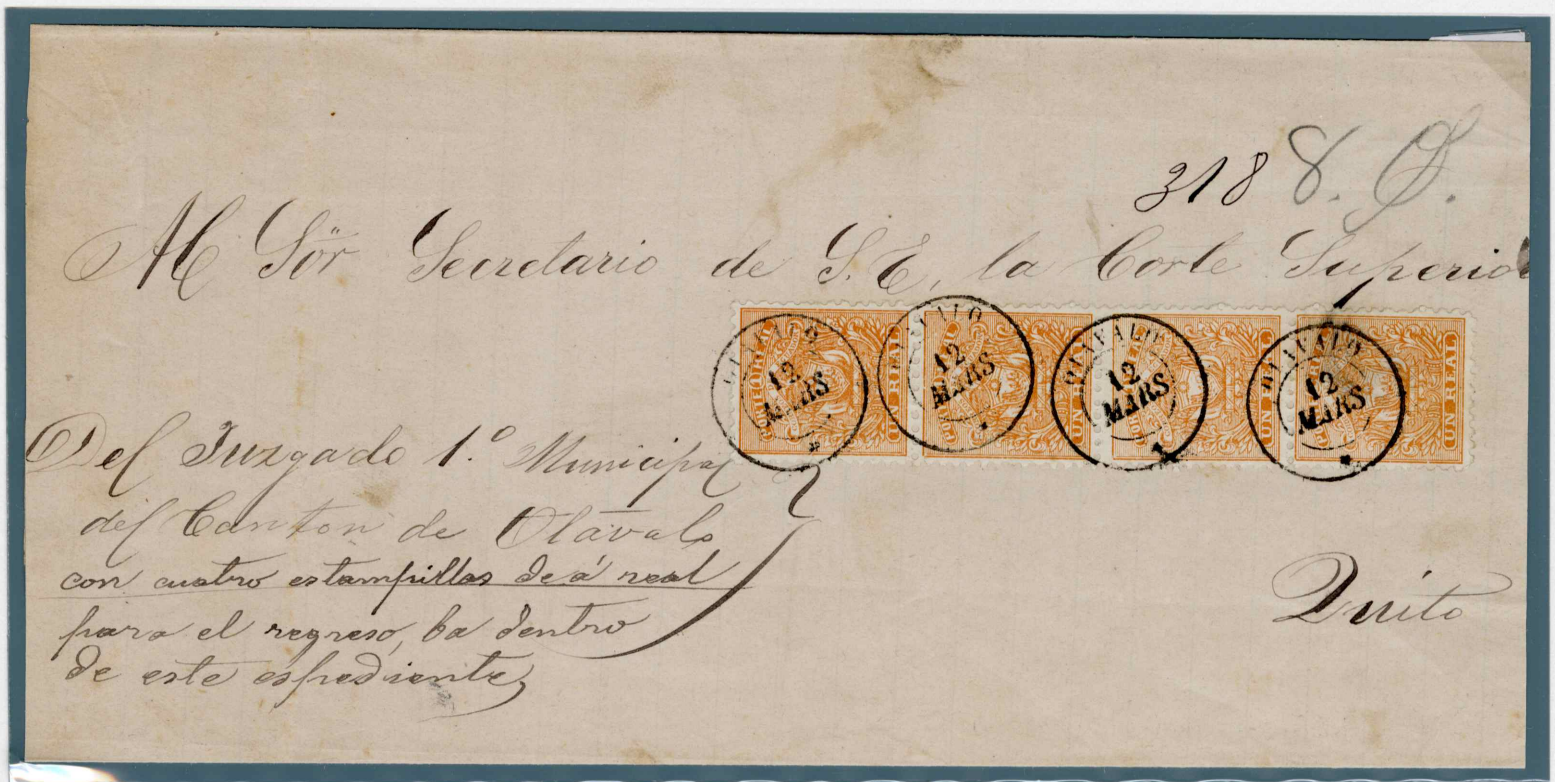 318 8. O.
Al Sör Secretario de S. E. la Corte Superior
OTAVALO 12 MARS
OTAVALO 12 MARS
OTAVALO 12 MARS
OTAVALO 12 MARS
UN REAL
UN REAL
UN REAL
UN REAL
Del Juzgado 1.º Municipal
del Canton de Otavalo
con cuatro estampillas de á real
para el regreso, ba dentro
de este espediente,
Quito